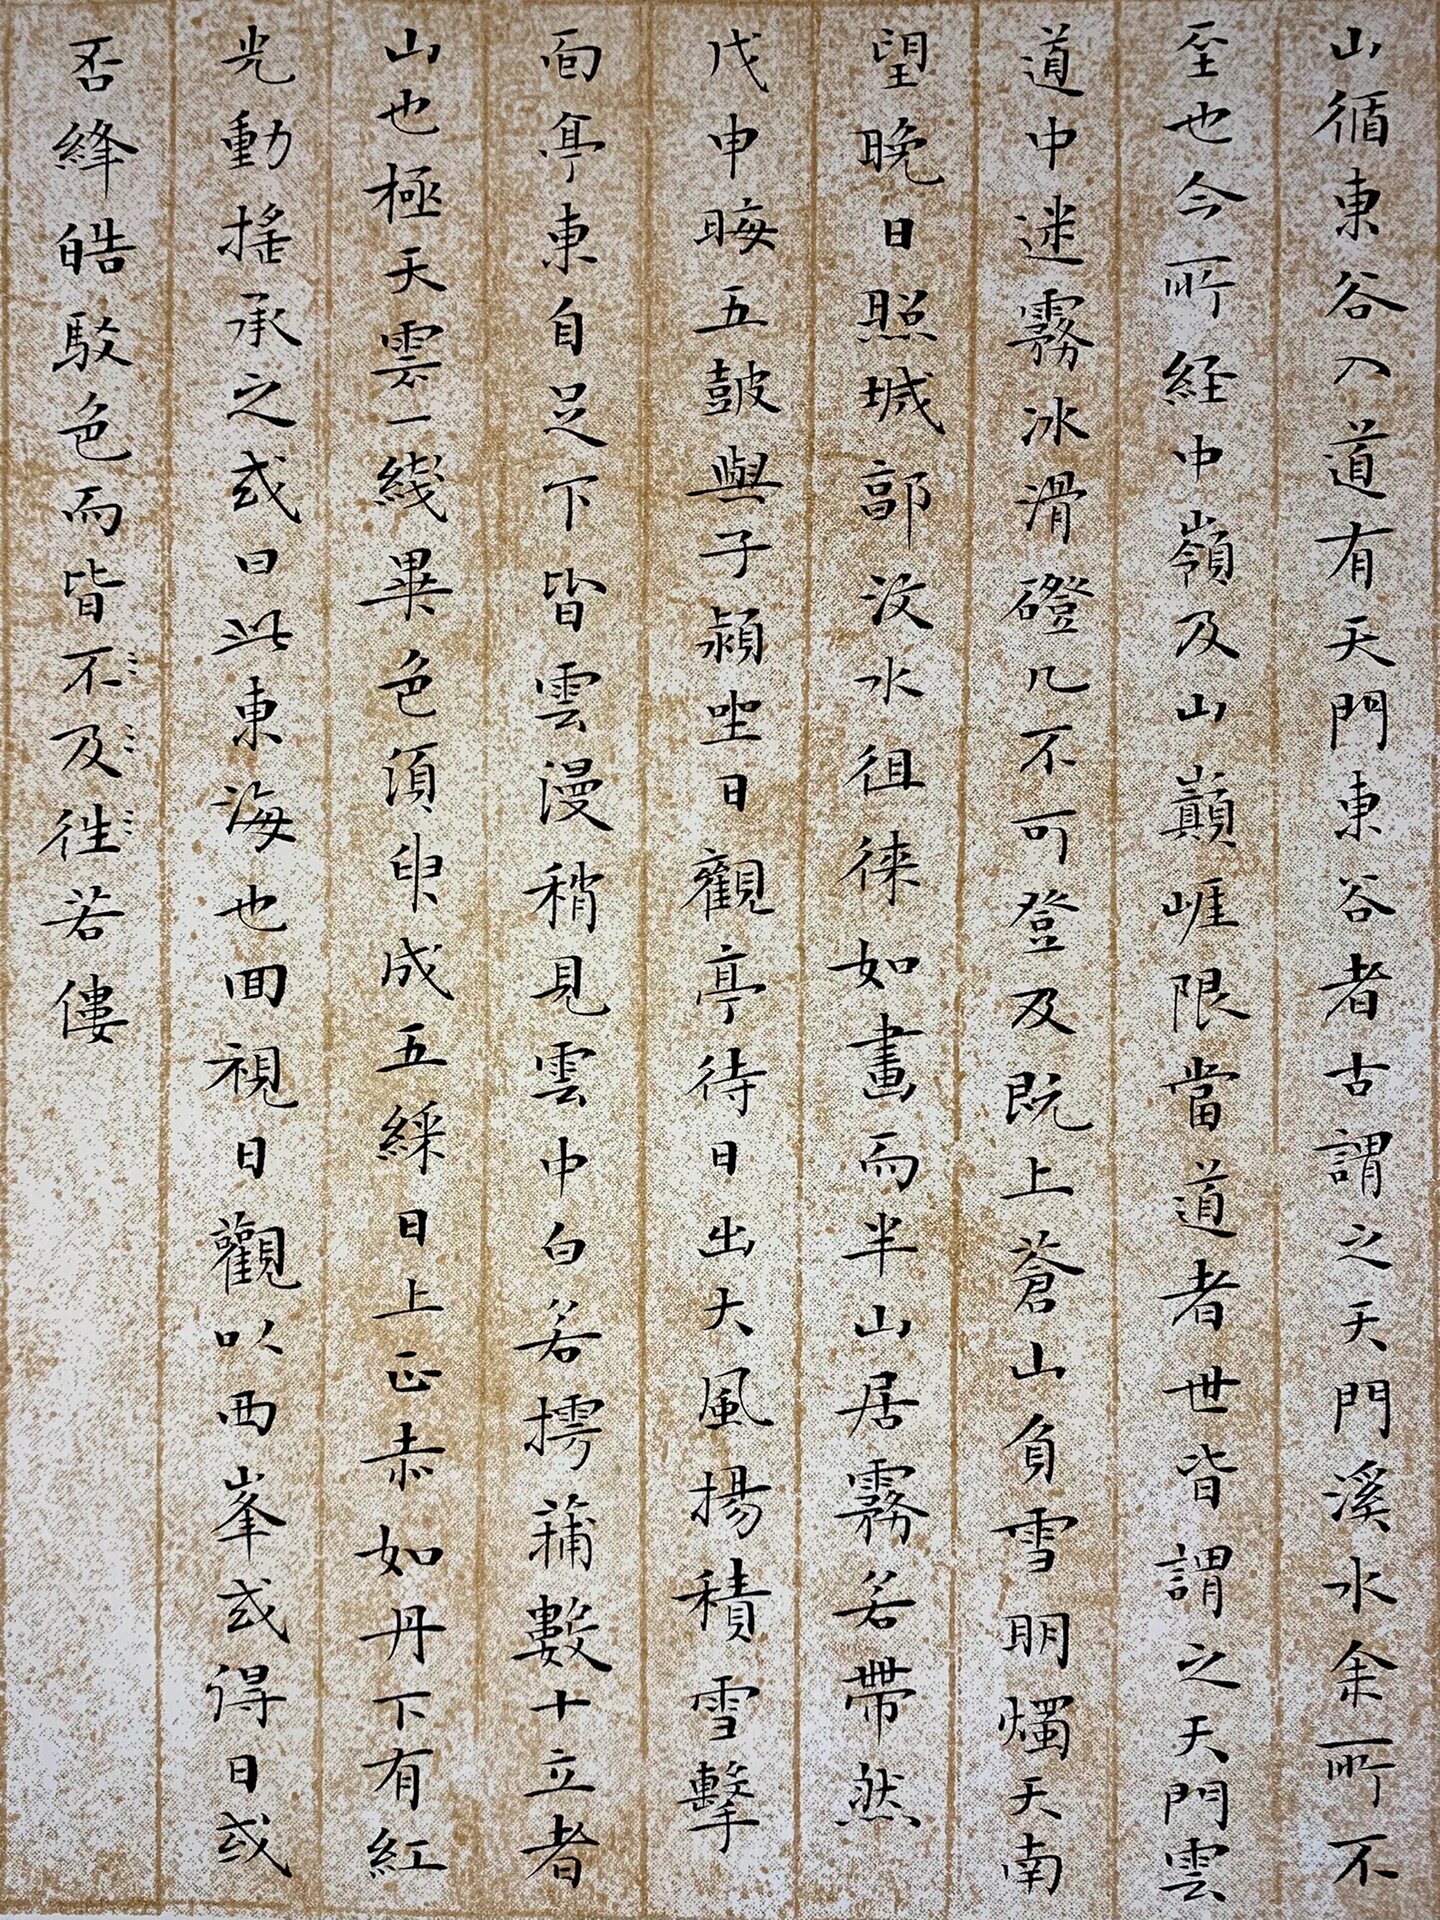 山循東谷入道有天門東谷者古謂之天門溪水余所不
至也今所経中嶺及山巔崕限當道者世皆謂之天門雲
道中迷霧冰滑磴几不可登及既上蒼山負雪明燭天南
望晚日照城郭汶水徂徠如畫而半山居霧若帶然
戊申晦五鼓與子潁坐日觀亭待日出大風揚積雪擊
面亭東自足下皆雲漫稍見雲中白若摴蒱數十立者
山也極天雲一綫異色須臾成五綵日上正赤如丹下有紅
光動搖承之或曰此東海也回視日觀以西峯或得日或
否絳皓駁色而皆不及往若僂